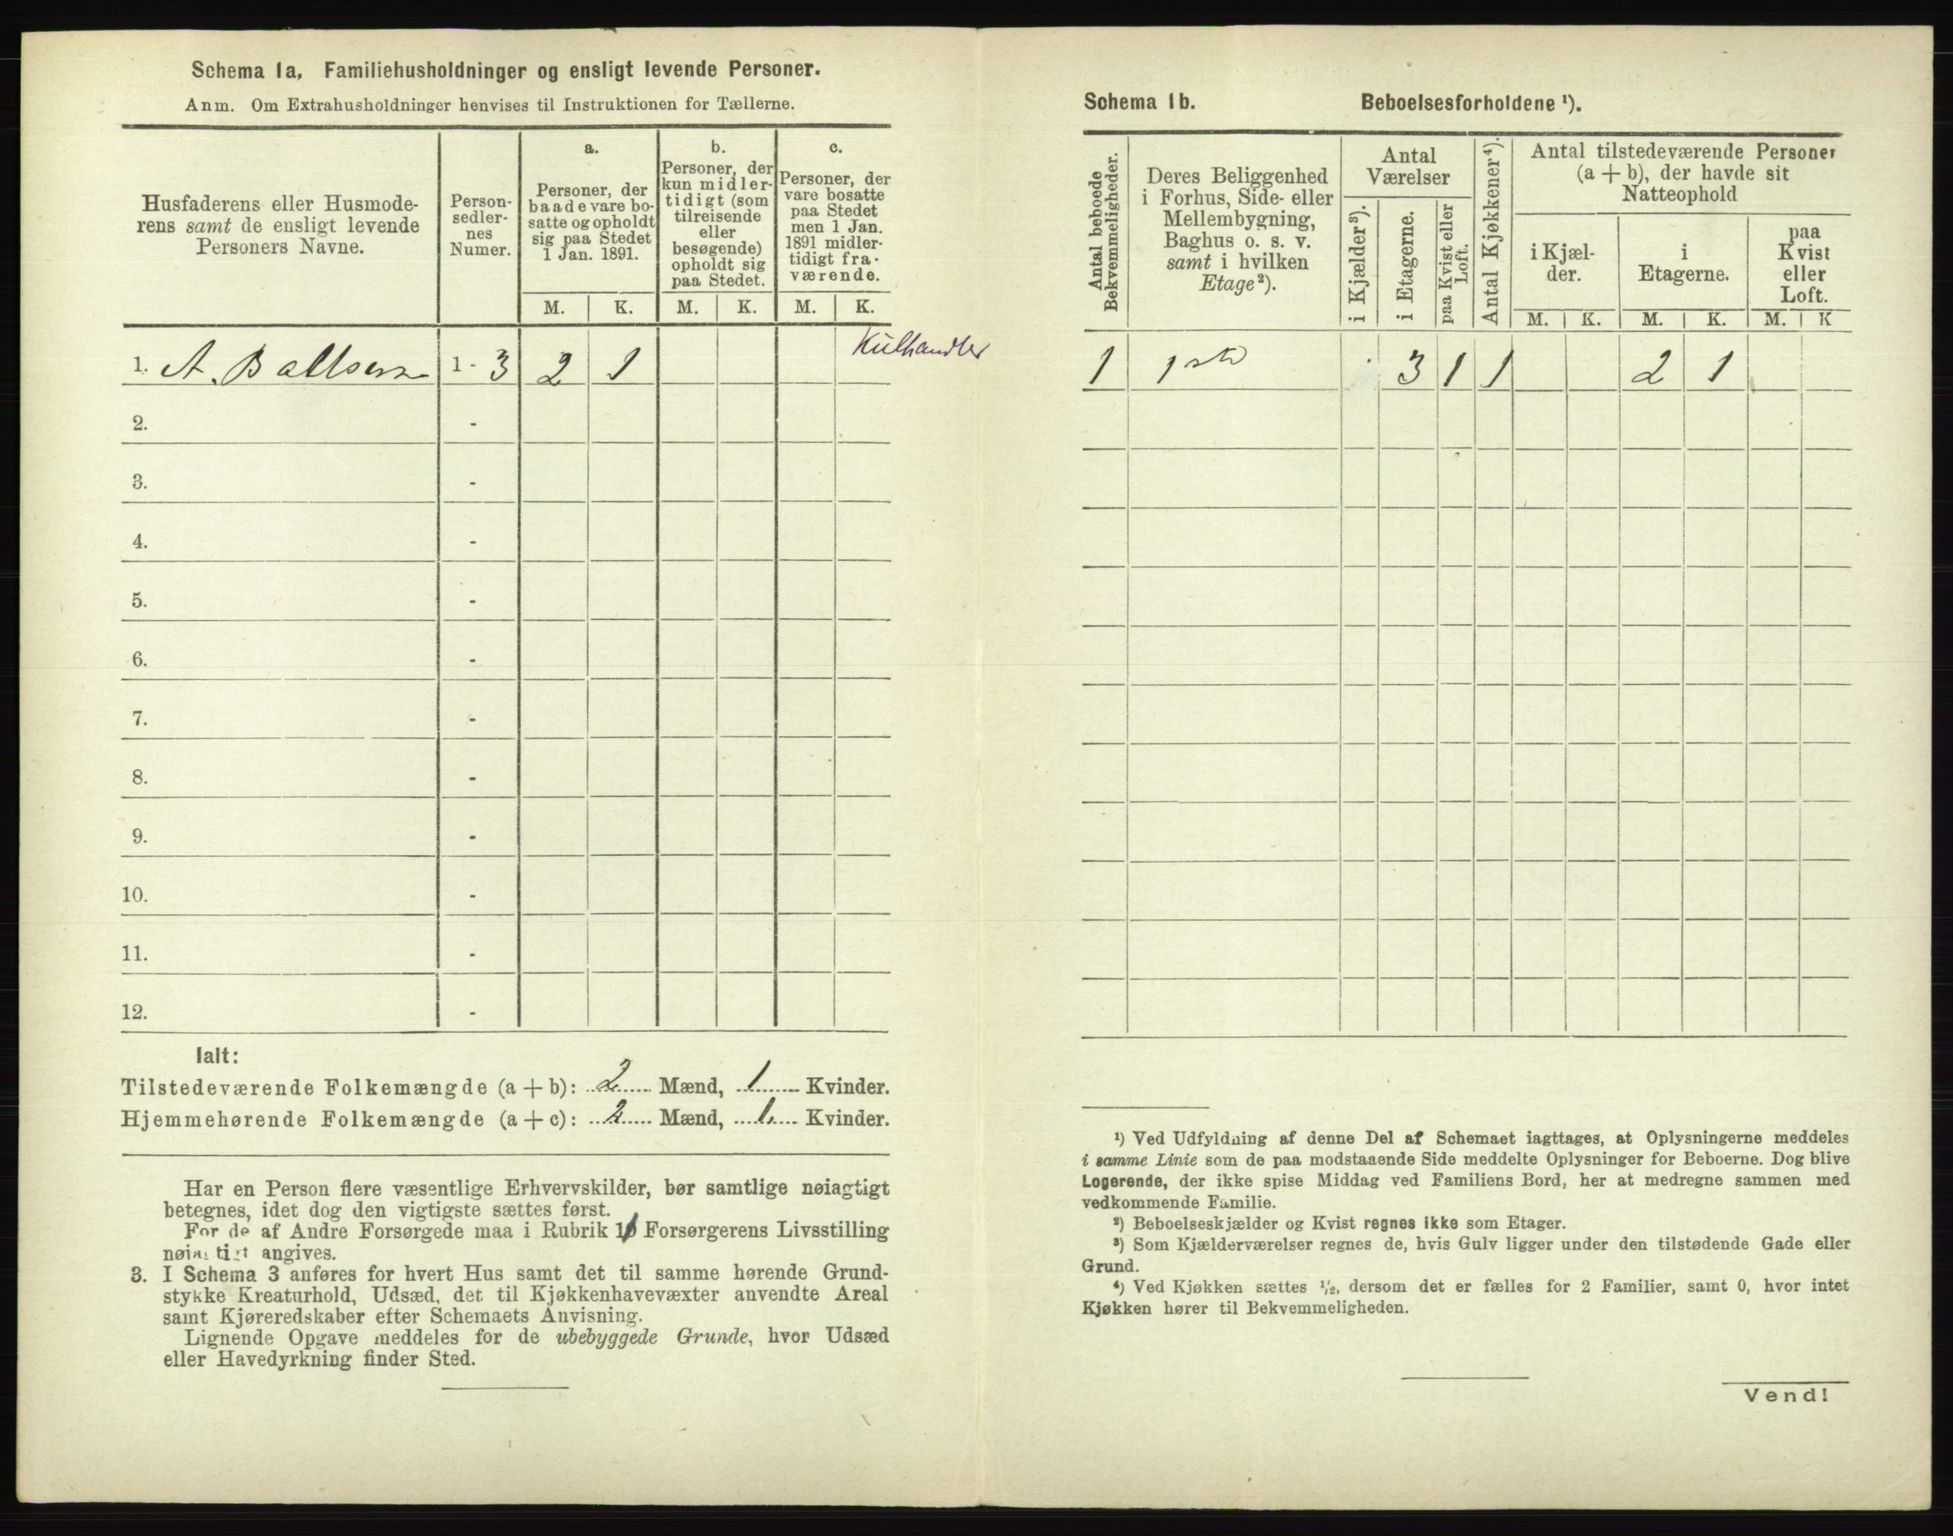 Schema 1a, Familiehusholdninger og ensligt levende Personer.
Anm. Om Extrahusholdninger henvises til Instruktionen for Tællerne.
Husfaderens eller Husmode-
rens samt de ensligt levende
Personers Navne.
Person-
sedler-
nes
Numer.
a.
Personer, der
baade vare bo-
satte og opholdt
sig paa Stedet
1 Jan. 1891.
b.
Personer, der
kun midler-
tidigt (som
tilreisende
eller
besøgende)
opholdt sig
paa Stedet.
c.
Personer, der
vare bosatte
paa Stedet
men 1 Jan.
1891 midler-
tidigt fra-
værende.
M. K. M. K. M. K.
Kulhandler
1. A. Baltsersen 1 - 3 2 1
2. -
3. -
4. -
5. -
6. -
7. -
8. -
9. -
10. -
11. -
12. -
Ialt:
Tilstedeværende Folkemængde (a + b): 2 Mænd, 1 Kvinder.
Hjemmehørende Folkemængde (a + c): 2 Mænd, 1 Kvinder.
Har en Person flere væsentlige Erhvervskilder, bør samtlige nøiagtigt
betegnes, idet dog den vigtigste sættes først.
For de af Andre Forsørgede maa i Rubrik 10 Forsørgerens Livsstilling
nøiagtigt angives.
3. I Schema 3 anføres for hvert Hus samt det til samme hørende Grund-
stykke Kreaturhold, Udsæd, det til Kjøkkenhavevæxter anvendte Areal
samt Kjøreredskaber efter Schemaets Anvisning.
Lignende Opgave meddeles for de ubebyggede Grunde, hvor Udsæd
eller Havedyrkning finder Sted.
Schema 1b. Beboelsesforholdene ¹).
Antal beboede
Bekvemmeligheder.
Deres Beliggenhed
i Forhus, Side- eller
Mellembygning,
Baghus o. s. v.
samt i hvilken
Etage²).
Antal
Værelser
i Kjælder³).
i Etagerne.
paa Kvist eller
Loft.
Antal Kjøkkener⁴).
Antal tilstedeværende Personer
(a + b), der havde sit
Natteophold
i Kjæl-
der.
i
Etagerne.
paa
Kvist
eller
Loft.
M. K. M. K. M. K
1 1ste 3 1 1 2 1
¹) Ved Udfyldning af denne Del af Schemaet iagttages, at Oplysningerne meddeles
i samme Linie som de paa modstaaende Side meddelte Oplysninger for Beboerne. Dog blive
Logerende, der ikke spise Middag ved Familiens Bord, her at medregne sammen med
vedkommende Familie.
²) Beboelseskjælder og Kvist regnes ikke som Etager.
³) Som Kjælderværelser regnes de, hvis Gulv ligger under den tilstødende Gade eller
Grund.
⁴) Ved Kjøkken sættes ½, dersom det er fælles for 2 Familier, samt 0, hvor intet
Kjøkken hører til Bekvemmeligheden.
Vend!